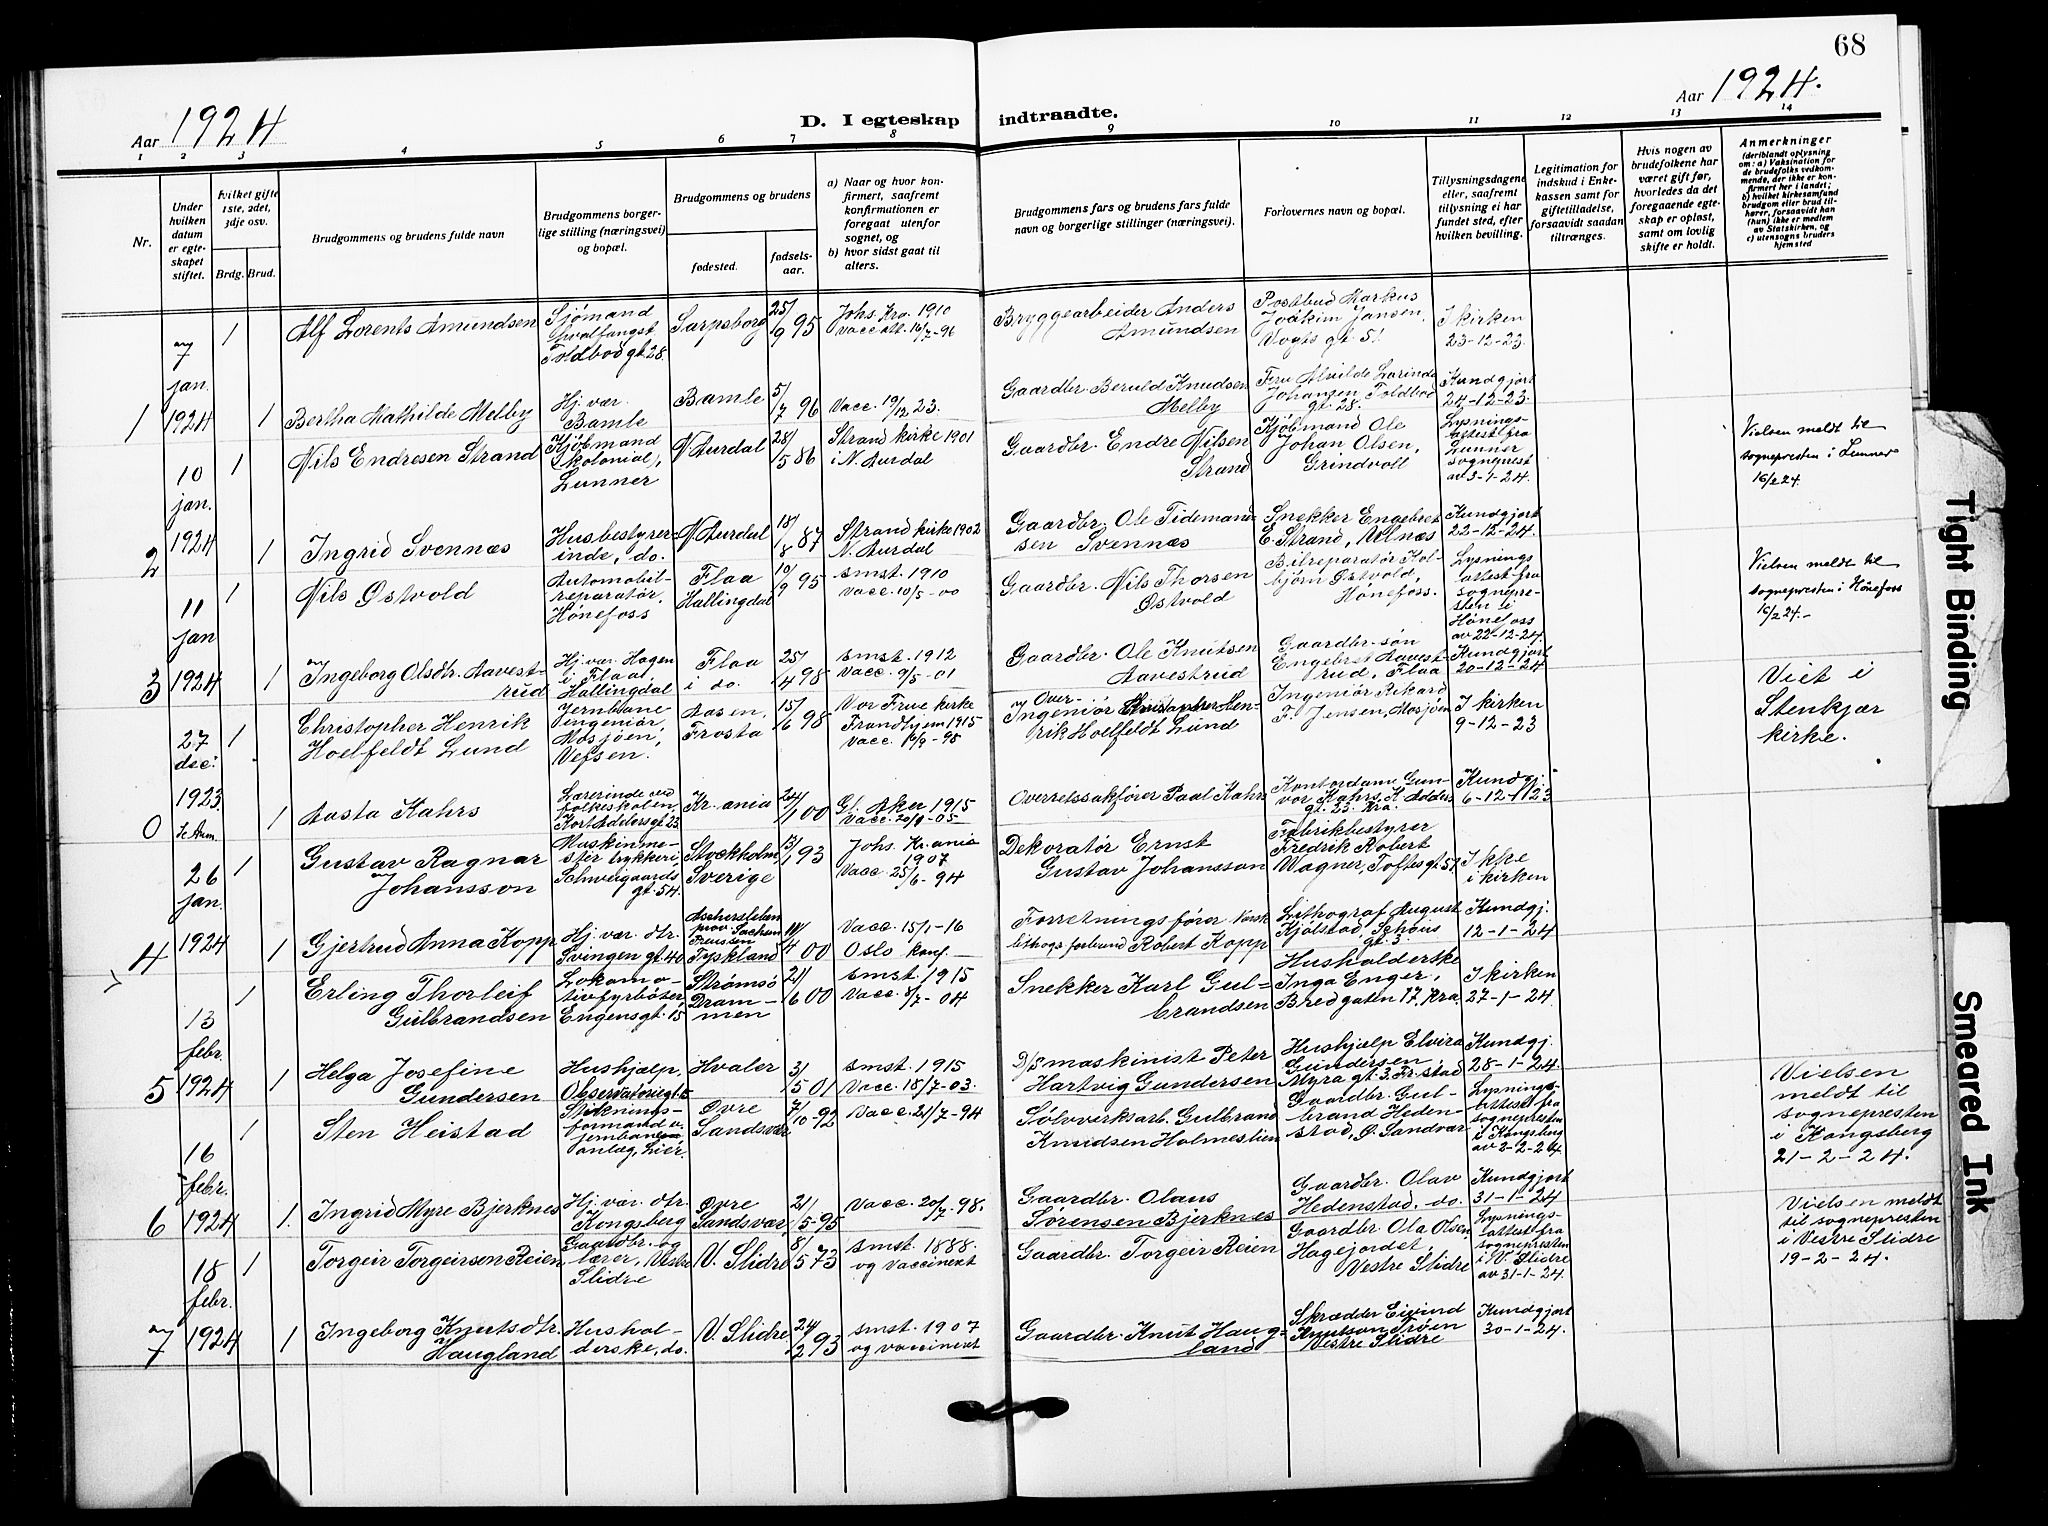 68
Aar 1924
D. I egteskap indtraadte.
Aar 1924.
1 2 3 4 5 6 7 8 9 10 11 12 13 14
Nr.
Under hvilken datum er egteskapet stiftet.
Hvilket gifte 1ste, 2det, 3dje osv.
Brdg. Brud.
Brudgommens og brudens fulde navn
Brudgommens borgerlige stilling (næringsvei) og bopæl.
Brudgommens og brudens
fødested.
fødselsaar.
a) Naar og hvor konfirmert, saafremt konfirmationen er foregaat utenfor sognet, og
b) hvor sidst gaat til alters.
Brudgommens fars og brudens fars fulde navn og borgerlige stillinger (næringsvei).
Forlovernes navn og bopæl.
Tillysningsdagene eller, saafremt tillysning ei har fundet sted, efter hvilken bevilling.
Legitimation for indskud i Enkekassen samt for giftetilladelse, forsaavidt saadan tiltrænges.
Hvis nogen av brudefolkene har været gift før, hvorledes da det foregaaende egteskap er opløst, samt om lovlig skifte er holdt.
Anmerkninger
(deriblandt oplysning om: a) Vaksination for de brudefolks vedkommende, der ikke er konfirmert her i landet; b) hvilket kirkesamfund brudgom eller brud tilhører, forsaavidt han (hun) ikke er medlem av Statskirken, og c) utensogns bruders hjemsted
1
7 jan. 1924
1 Alf Lorents Amundsen
Sjømand hvalfangst Toldbodgt 28.
Sarpsborg
25/9 95
Johs. Kra. 1910
Vacc att. 16/7-96
Bryggearbeider Anders Amundsen
Postbud Markus Joakim Jansen, Vogts gt. 51
I kirken 23-12-23.
1 Bertha Mathilde Melby
Hj. vær. Bamle
Bamle
5/7 96
Vacc. 19/12 23.
Gaardbr. Beruld Knudsen Melby
Fru Alvilde Larinde Johansen, Toldbod gt. 28.
Kundgjort 24-12-23.
2
10 jan. 1924
1 Nils Endresen Strand
Kjøbmand (kolonial), Lunner
N. Aurdal
28/5 86
Strand kirke 1901 i N. Aurdal
Gaardbr. Endre Nilsen Strand
Kjøbmand Ole Johan Olsen, Grindvoll
Lysningsattest fra Lunner sogneprest av 3-1-24.
Vielsen meldt til sognepresten i Lunner 16/2 24.
1 Ingrid Svennæs
Husbestyrerinde, do.
N. Aurdal
18/8 87
Strand kirke 1902 N. Aurdal
Gaardbr. Ole Tidemandsen Svennæs
Snekker Engebret E. Strand, Ulnæs
Kundgjort 22-12-24.
3
11 jan 1924
1 Nils Østvold
Automobilreparatør, Hønefoss
Flaa Hallingdal
10/9 95
smst. 1910
Vacc. 10/5-00
Gaardbr. Nils Thorsen Østvold
Bilreparatør Kolbjørn Østvold, Hønefoss.
Lysningsattest fra sognepresten i Hønefoss av 22-12-24.
Vielsen meldt til sognepresten i Hønefoss 16/2 24.-
1 Ingeborg Olsdtr. Aavestrud
Hj. vær. Hagen i Flaa, Hallingdal
Flaa i do.
25/4 98
smst. 1912
Vacc. 9/5-01
Gaardbr. Ole Knutsen Aavestrud
Gaardbr.søn Engebret Aavestrud, Flaa
Kundgjort 20-12-24
0
27 dec. 1923
1 Christopher Henrik Hoelfeldt Lund
Jernbaneingeniør, Mosjøen, Vefsen.
Aasen, Frosta
15/6 98
Vor Frue kirke Trondhjem 1915
Vacc. 16/9-98
Overingeniør Christopher Henrik Hoelfeldt Lund
Ingeniør Rikard F. Jensen, Mosjøen
I kirken 9-12-23
Viet i Stenkjær kirke.
1 Aasta Kahrs
Lærerinde ved folkeskolen, Kort Addersgt 23.
Kr.ania
24/1 00
Gl. Aker 1915
Vacc. 20/9-05
Overretssakfører Paal Kahrs
Kontordame Gunvor Kahrs, K. Adders gt. 23. Kra.
Kundgj. 6-12-1923
4
26 jan. 1924
1 Gustav Ragnar Johansson
Maskinmester trykkeri Schweigaards gt. 54.
Stockholm Sverige
13/1 93
Johs. Kr.ania 1907
Vacc. 25/6-94
Dekoratør Ernst Gustav Johansson
Fabrikbestyrer Fredrik Robert Wagner, Toftesgt 57.
Ikke i kirken
1 Gjertrud Anna Kopp
Hj. vær. dtr. Svingen gt. 40
Aschersleben prov. Sachsen Preussen Tyskland
11/4 00
Vacc. 15/1-16
Oslo konf.
Forretningsfører Norsk lithogr. forbund Robert Kopp
Lithograf August Kjølstad, Schous gt. 3.
Kundgj. 12-1-24
5
13 febr. 1924
1 Erling Thorleif Gulbrandsen
Lokomotivfyrbøter Engensgt. 15
Strømsø Drammen
21/6 00
smst. 1915
Vacc. 8/7-04
Snekker Karl Gulbrandsen
Husholderske Inga Enger, Bredgaten 17. Kra.
I kirken 27-1-24.
1 Helga Josefine Gundersen
Hushjælp, Observatoriegt. 5
Hvaler
3/5 01
smst. 1915
Vacc. 18/7-03.
D/S maskinist Peter Hartvig Gundersen
Hushjælp Elvira Gundersen Myra gt. 3. Fr.stad
Kundgj. 28-1-24.
6
16 febr. 1924
1 Sten Heistad
Stikningsformand v. jernbaneanlæg, Lier.
Øvre Sandsvær
7/10-92
Vacc. 21/7-94
Sølvverksarb. Gulbrand Knudsen Holmestien
Gaardbr. Gulbrand Hedenstad, Ø. Sandsvær
Lysningsattest fra sognepresten i Kongsberg av 2-2-24.
Vielsen meldt til sognepresten i Kongsberg 21-2-24.
1. Ingrid Myre Bjerknes
Hj. vær. dtr. Kongsberg
Øvre Sandsvær
21/5-95
Vacc. 20/7-98.
Gaardbr. Olaus Sørensen Bjerknes
Gaardbr. Olav Hedenstad, do.
Kundgjort 31-1-24
7
18 febr. 1924
1 Torgeir Torgeirson Reien
Gaardbr. og lærer, Vestre Slidre
V. Slidre
8/5 73
smst. 1888. og vaccinert
Gaardbr. Torgeir Reien
Gaardbr. Ola Olsen Hagejordet, Vestre Slidre
Lysningsattest fra sognepresten i V. Slidre av 31-1-24.
Vielsen meldt til sognepresten i Vestre Slidre 19-2-24.
1 Ingeborg Knutsdtr. Haugland
Husholderske, do.
V. Slidre
24/2 93
smst. 1907 og vaccinert
Gaardbr. Knut Haugland
Skrædder Eivind Knutson Trøen Vestre Slidre
Kundgjort 30-1-24.
Tight Binding
Smeared Ink